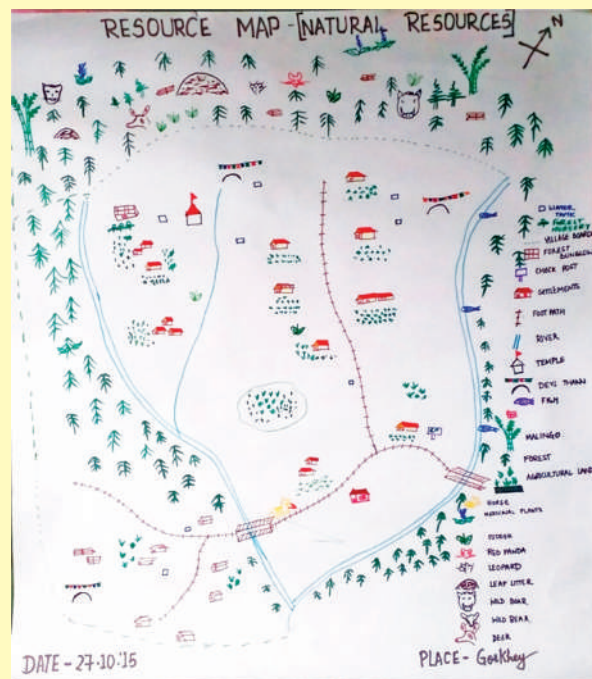 RESOURCE MAP - [NATURAL RESOURCES]
N
WATER TANK
FOREST NURSERY
VILLAGE BOARD
FOREST BUNGLOW
CHECK POST
SETTLEMENTS
FOOT PATH
RIVER
TEMPLE
DEVI THANN
FISH
MALINGO
FOREST
AGRICULTURAL LAND
HORSE
MEDICINAL PLANTS
RED PANDA
LEOPARD
LEAF LITTER
WILD BOAR
WILD BEAR
DEER
DATE - 27·10·15
PLACE - Gorkhey